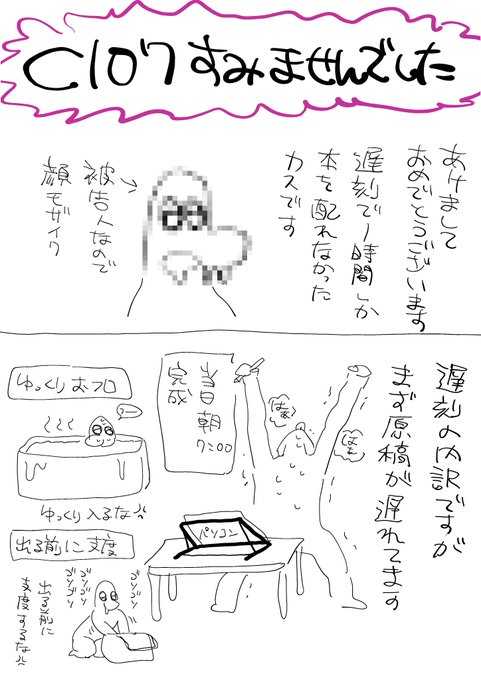 C107すみませんでした
あけまして
おめでとうございます
遅刻で1時間しか
本を配れなかった
カスです
被告人なので
顔モザイク
遅刻の内訳ですが
まず原稿が遅れてます
はぁ
はぁ
当日朝
7:00
完成
パソコン
ゆっくりお風呂
ゆっくり入るな
出る前に支度
ゴソゴソ
ゴソゴソ
ゴソゴソ
出る前に
支度するな